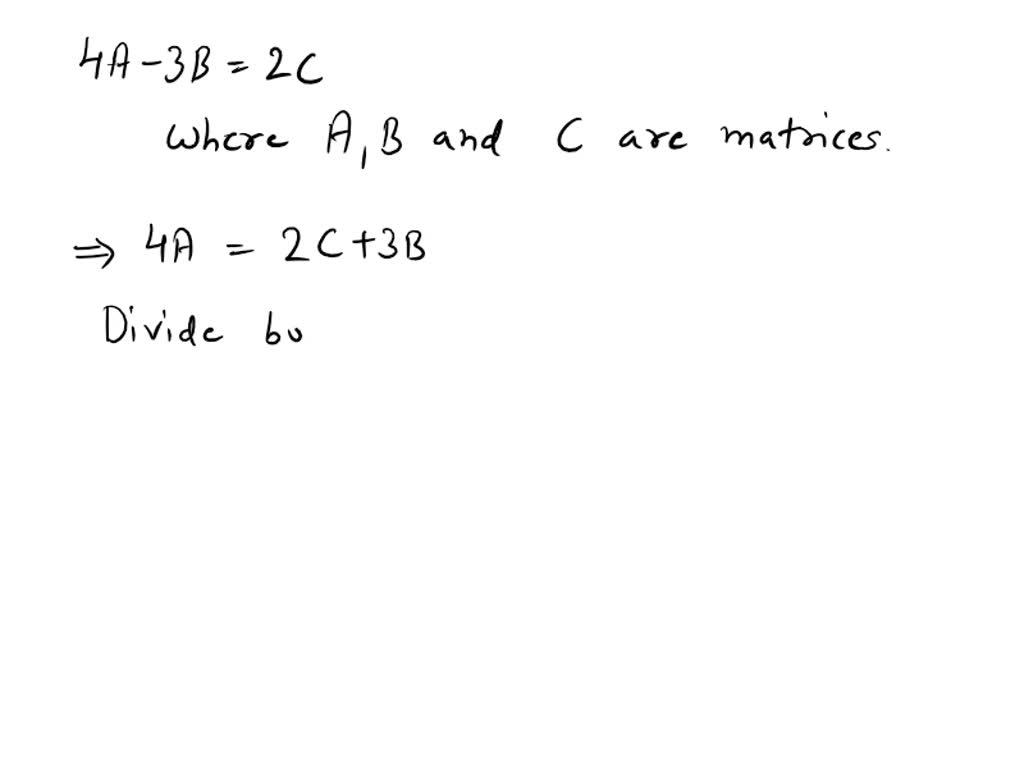 4A-3B = 2C
where A, B and C are matrices.
⇒ 4A = 2C+3B
Divide